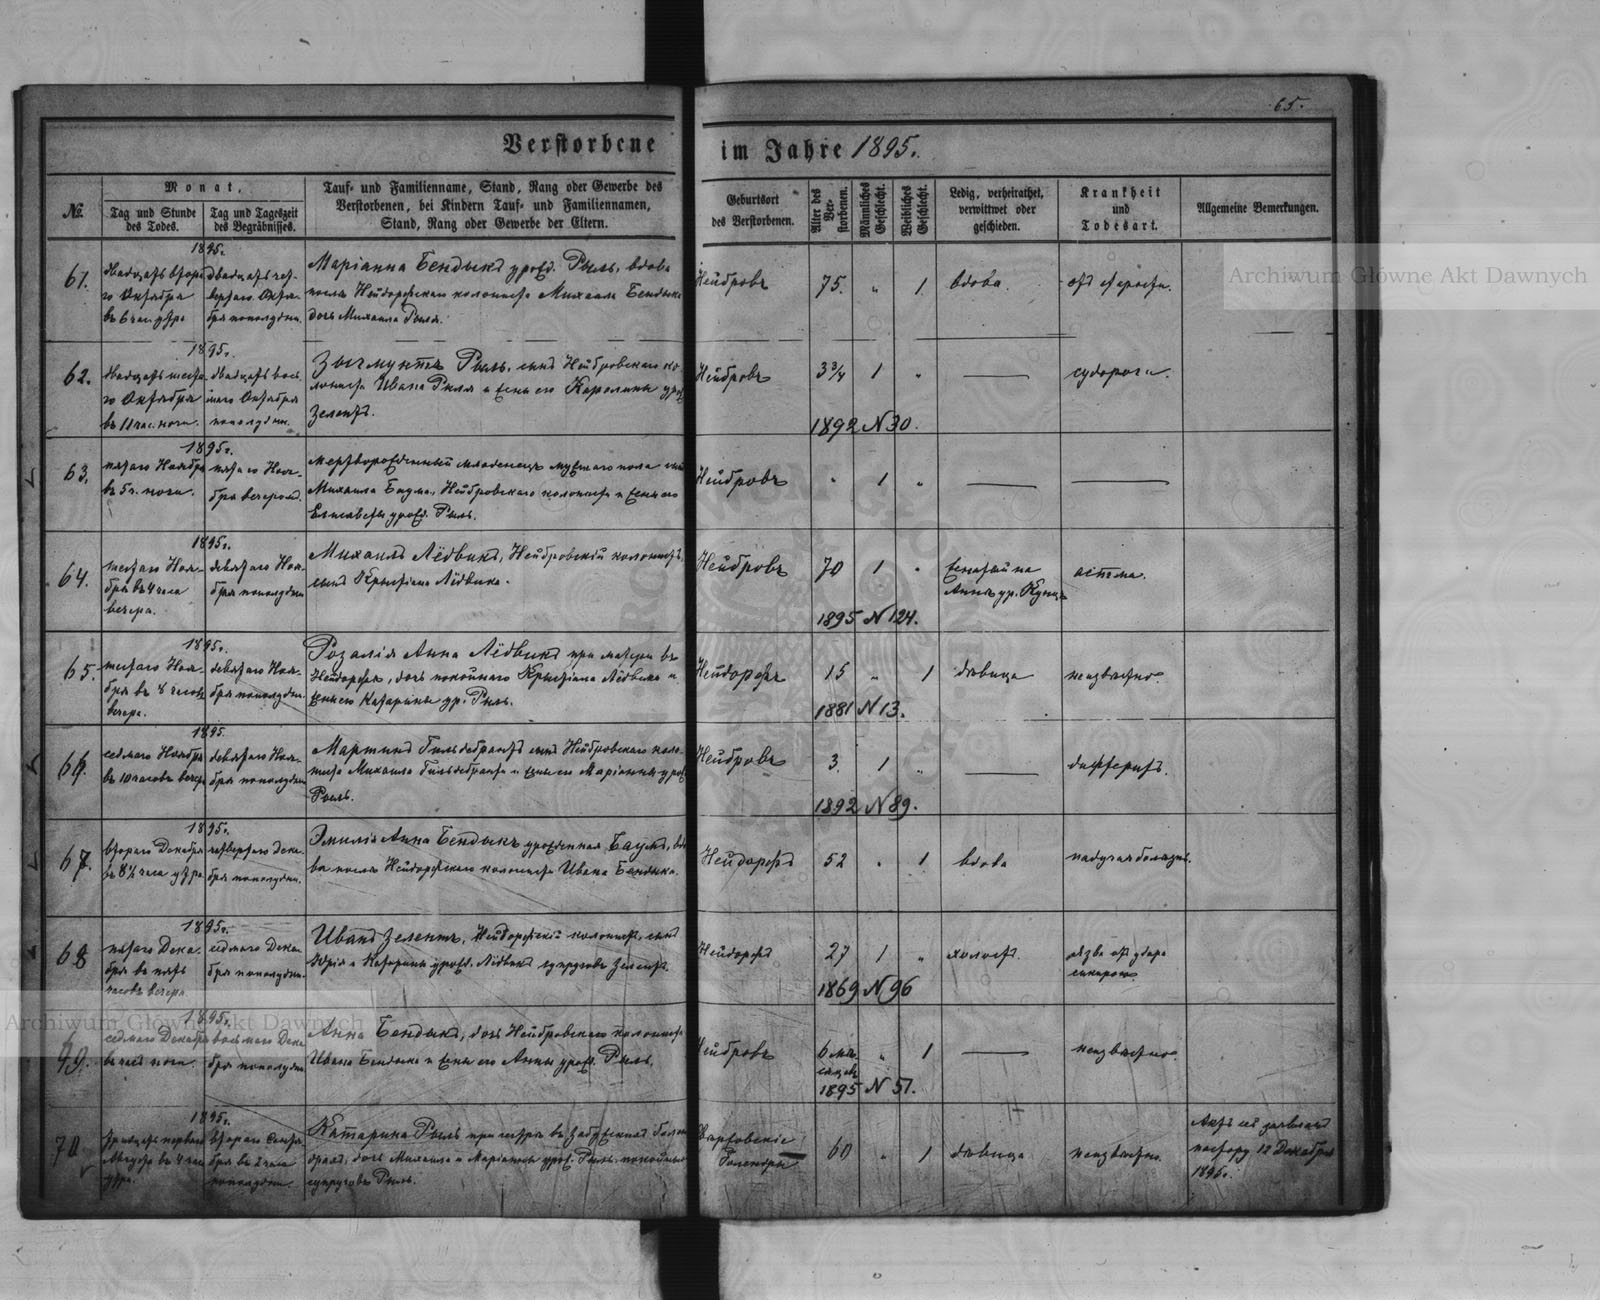 65.
Verstorbene im Jahre 1895.
№
Monat.
Tag und Stunde des Todes.
Tag und Tageszeit des Begräbnisses.
Tauf- und Familienname, Stand, Rang oder Gewerbe des
Verstorbenen, bei Kindern Tauf- und Familiennamen,
Stand, Rang oder Gewerbe der Eltern.
Geburtsort
des Verstorbenen.
Alter des Verstorbenen.
Männliches Geschlecht.
Weibliches Geschlecht.
Ledig, verheirathet,
verwittwet oder
geschieden.
Krankheit
und
Todesart.
Allgemeine Bemerkungen.
61.
1895.
двадцать втора-
го Октября
въ 6 час. утра
двадцать чет-
вертаго Октя-
бря пополудни.
Маріанна Бендыкъ урожд. Рыль, вдова
послѣ Нейдорфскаго колониста Михаила Бендыка
дочь Михаила Рыля.
Нейбровъ
75.
"
1
вдова.
отъ старости.
62.
1895г.
двадцать шеста-
го Октября
въ 11 час. ночи.
двадцать вось-
маго Октября
пополудни.
Зыгмунтъ Рыль, сынъ Нейбровскаго ко-
лониста Ивана Рыля и жены его Каролины урож.
Зелентъ.
Нейбровъ
3 3/4
1
"
судороги.
1892 N 30.
63.
1895г.
пятаго Ноября
въ 5 ч. ночи.
пятаго Ноя-
бря вечеромъ.
мертворожденный младенецъ мужскаго пола сынъ
Михаила Баума, Нейбровскаго колониста и жены его
Елисаветы урожд. Рыль.
Нейбровъ
"
1
"
64.
1895г.
шестаго Ноя-
бря въ 4 часа
вечера.
девятаго Ноя-
бря пополудни
Михаилъ Лёдвикъ, Нейбровскій колонистъ,
сынъ Крыстіана Лёдвика.
Нейбровъ
70
1
"
женатый на
Аннѣ ур. Кунцъ
астма.
1895 N 124.
65.
1895г.
шестаго Ноя-
бря въ 8 часовъ
вечера.
девятаго Ноя-
бря пополудни.
Розалія Анна Лёдвикъ при матери въ
Нейдорфѣ, дочь покойнаго Крыстіана Лёдвика и
жены его Катарины ур. Рыль.
Нейдорфъ
15
"
1
дѣвица
неизвѣстно.
1881 N 13.
66.
1895.
седмаго Ноября
въ 10 часовъ вечера
девятаго Ноя-
бря пополудни
Мартинъ Гильдебрантъ сынъ Нейбровскаго коло-
ниста Михаила Гильдебранта и жены его Маріанны урож.
Рыль.
Нейбровъ
3.
1
"
дифтеритъ.
1892 N 89.
67.
1895г.
втораго Декабря
въ 8½ часа утра
четвертаго Дека-
бря пополудни.
Эмилія Анна Бендыкъ урожденная Баумъ, вдо-
ва послѣ Нейдорфскаго колониста Ивана Бендыка.
Нейдорфъ
52
"
1
вдова
падучая болѣзнь.
68
1895г.
пятаго Дека-
бря въ пять
часовъ вечера
седмаго Дека-
бря пополудни.
Иванъ Зелентъ, Нейдорфскій колонистъ, сынъ
Юрія и Катарины урожд. Лёдвикъ супруговъ Зелентъ.
Нейдорфъ
27
1
"
холостъ.
язва отъ удара
секирою
1869 N 96
69.
1895г.
седмаго Декабря
въ часъ ночи.
восьмаго Дека-
бря пополудни
Анна Бендыкъ, дочь Нейбровскаго колониста
Ивана Бендыка и жены его Анны урожд. Рыль.
Нейбровъ
6 мѣ-
сяцевъ
"
1
неизвѣстно
1895 N 51.
70
1895г.
тридцать перваго
Августа въ 4 часа
утра.
втораго Сентя-
бря въ 2 часа
пополудни.
Катарина Рыль при сестрѣ въ Забужскихъ Голен-
драхъ, дочь Михаила и Маріанны урожд. Рыль покойныхъ
супруговъ Рыль.
Голендры
60
"
1
дѣвица
неизвѣстно.
Актъ сей заявленъ
пастору 12 Декабря
1895г.
Archiwum Główne Akt Dawnych
Archiwum Główne Akt Dawnych